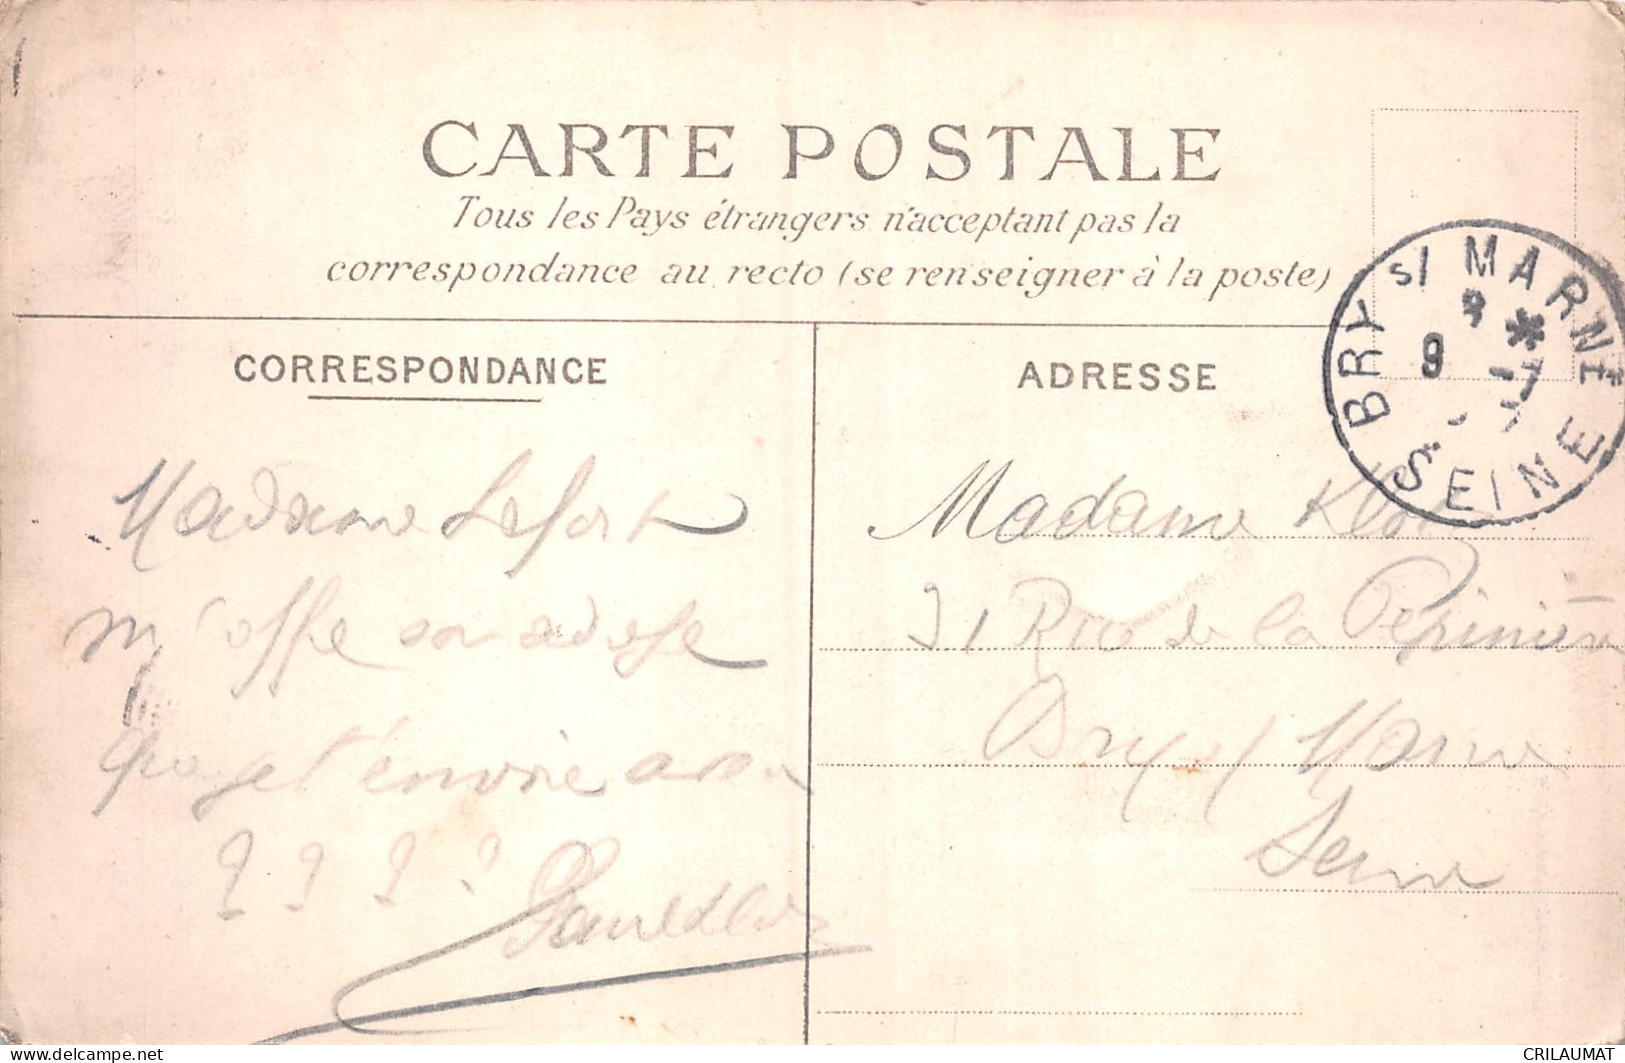 CARTE POSTALE
Tous les Pays étrangers n'acceptant pas la
correspondance au recto (se renseigner à la poste)
CORRESPONDANCE
ADRESSE
BRY s/ MARNE
8
SEINE
Madame Lefort
m'offre son adresse
que je t'envoie
? ? ? ?
Madame
31 Rue de la Pépinière
Bry s/ Marne
Seine
delcampe.net
CRILAUMAT